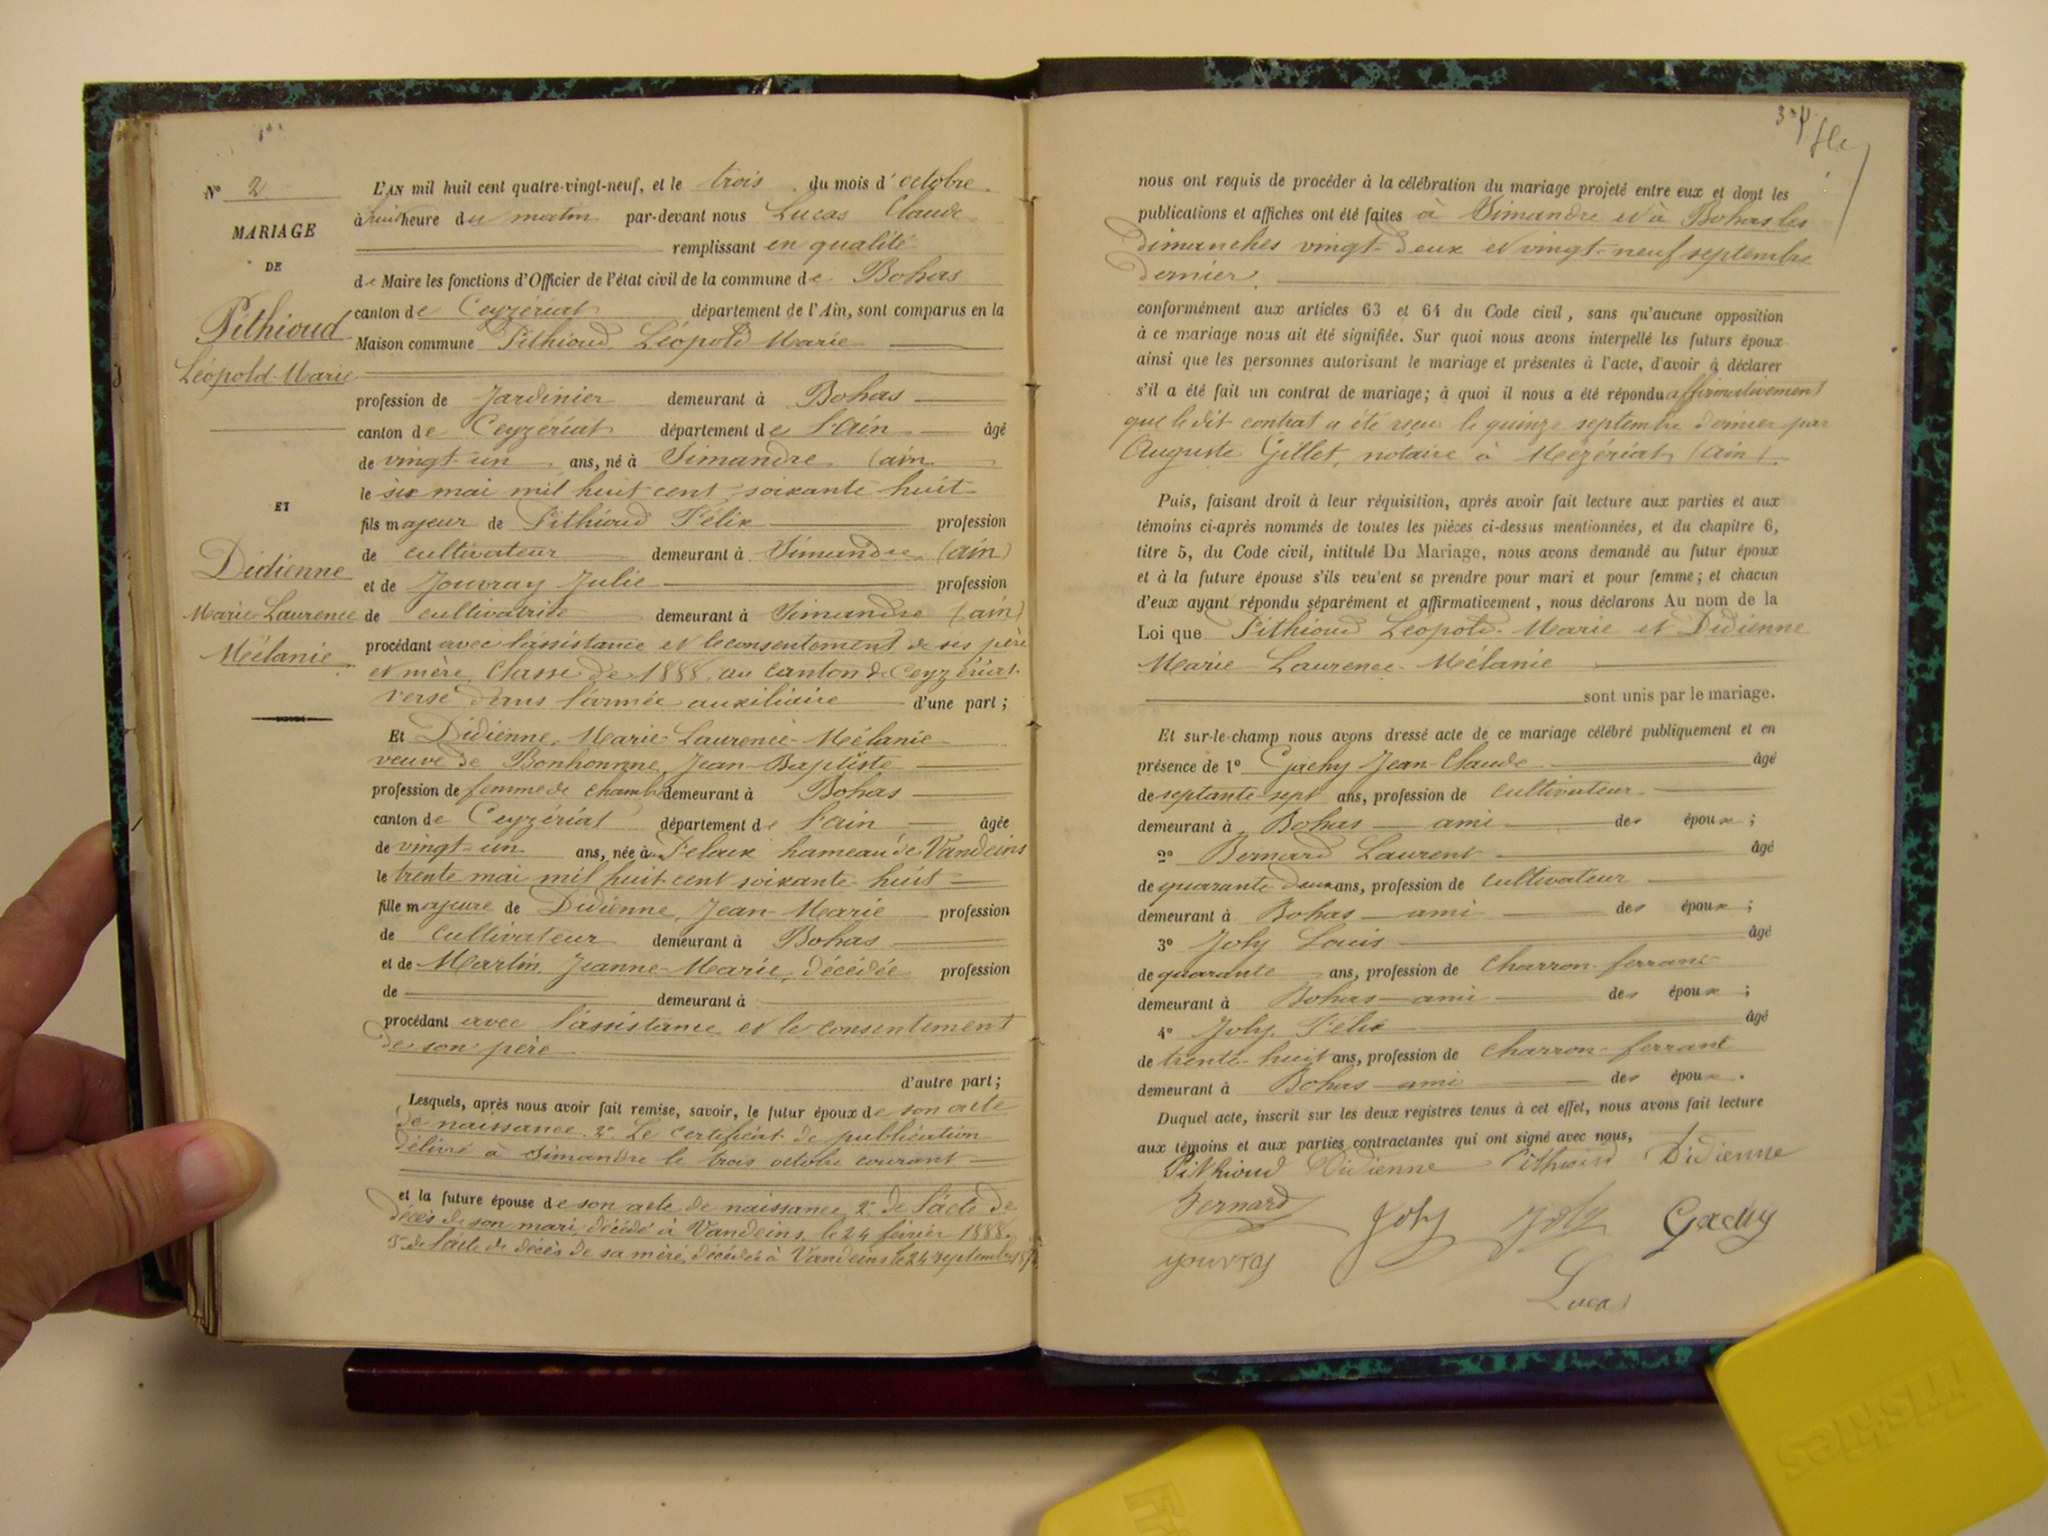 N° 2
MARIAGE
DE
Pithioud
Léopold-Marie
ET
Didienne
Marie-Laurence
Mélanie
L'AN mil huit cent quatre-vingt-neuf, et le trois du mois d'octobre
à huit heure du matin par-devant nous Lucas Claude
remplissant en qualité
de Maire les fonctions d'Officier de l'état civil de la commune de Bohas
canton de Ceyzériat département de l'Ain, sont comparus en la
Maison commune Pithioud Léopold Marie
profession de Jardinier demeurant à Bohas
canton de Ceyzériat département de l'Ain âgé
de vingt-un ans, né à Simandre (ain
le six mai mil huit cent soixante huit
fils majeur de Pithioud Félix profession
de cultivateur demeurant à Simandre (ain)
et de Jouvray Julie profession
de cultivatrice demeurant à Simandre (ain)
procédant avec l'assistance et le consentement de ses père
et mère, classe de 1888 au canton de Ceyzériat
versé dans l'armée auxiliaire d'une part ;
Et Didienne, Marie-Laurence-Mélanie
veuve de Bonhomme, Jean-Baptiste
profession de femme de chambre demeurant à Bohas
canton de Ceyzériat département de l'ain âgée
de vingt-un ans, née à hameau de Vandeins
le trente mai mil huit cent soixante-huit
fille majeure de Didienne, Jean-Marie profession
de cultivateur demeurant à Bohas
et de Martin Jeanne-Marie, décédée profession
de demeurant à
procédant avec l'assistance et le consentement
de son père
d'autre part ;
Lesquels, après nous avoir fait remise, savoir, le futur époux de son acte
de naissance 2° Le certificat de publication
délivré à Simandre le trois octobre courant
et la future épouse de son acte de naissance 2° de l'acte de
décès de son mari, décédé à Vandeins, le 24 février 1888,
3° de l'acte de décès de sa mère, décédée à Vandeins le 24 septembre
nous ont requis de procéder à la célébration du mariage projeté entre eux et dont les
publications et affiches ont été faites à Simandre et à Bohas les
dimanches vingt-deux et vingt-neuf septembre
dernier.
conformément aux articles 63 et 64 du Code civil, sans qu'aucune opposition
à ce mariage nous ait été signifiée. Sur quoi nous avons interpellé les futurs époux
ainsi que les personnes autorisant le mariage et présentes à l'acte, d'avoir à déclarer
s'il a été fait un contrat de mariage ; à quoi il nous a été répondu affirmativement
que le dit contrat a été reçu le quinze septembre dernier par
Auguste Gillet, notaire à Mézériat (Ain).
Puis, faisant droit à leur réquisition, après avoir fait lecture aux parties et aux
témoins ci-après nommés de toutes les pièces ci-dessus mentionnées, et du chapitre 6,
titre 5, du Code civil, intitulé Du Mariage, nous avons demandé au futur époux
et à la future épouse s'ils veu'ent se prendre pour mari et pour femme ; et chacun
d'eux ayant répondu séparément et affirmativement, nous déclarons Au nom de la
Loi que Pithioud Léopold-Marie et Didienne
Marie-Laurence-Mélanie
sont unis par le mariage.
Et sur-le-champ nous avons dressé acte de ce mariage célébré publiquement et en
présence de 1° Gachy Jean-Claude âgé
de septante-sept ans, profession de cultivateur
demeurant à Bohas ami des époux ;
2° Bernard Laurent âgé
de quarante deux ans, profession de cultivateur
demeurant à Bohas ami des époux ;
3° Joly Louis âgé
de quarante ans, profession de charron-ferrant
demeurant à Bohas ami des époux ;
4° Joly Félix âgé
de trente-huit ans, profession de charron-ferrant
demeurant à Bohas ami des époux.
Duquel acte, inscrit sur les deux registres tenus à cet effet, nous avons fait lecture
aux témoins et aux parties contractantes qui ont signé avec nous,
Pithioud Didienne Pithioud Didienne
Bernard Joly Joly Gachy
youvray
Lucas